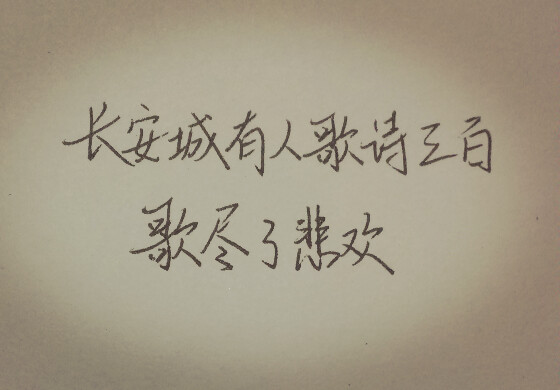 长安城有人歌诗三百
歌尽了悲欢